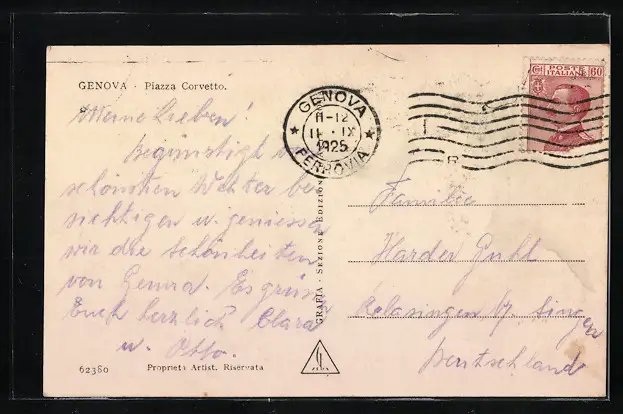 GENOVA - Piazza Corvetto.
Meine Lieben!
Begünstigt v.
schönsten Wetter be-
sichtigen u. geniessen
wir die Schönheiten
von Genua. Es grüsst
Euch herzlich Clara
u. Otto.
62380 Proprietà Artist. Riservata
GRAFIA - SEZIONE EDIZIONI
GENOVA
11-12
11 · IX
1925
FERROVIA
POSTE
ITALIANE
60
Familie
Harder
Singen
Deutschland